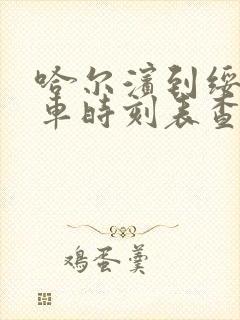 哈尔滨到绥
车时刻表查
鸡蛋羹